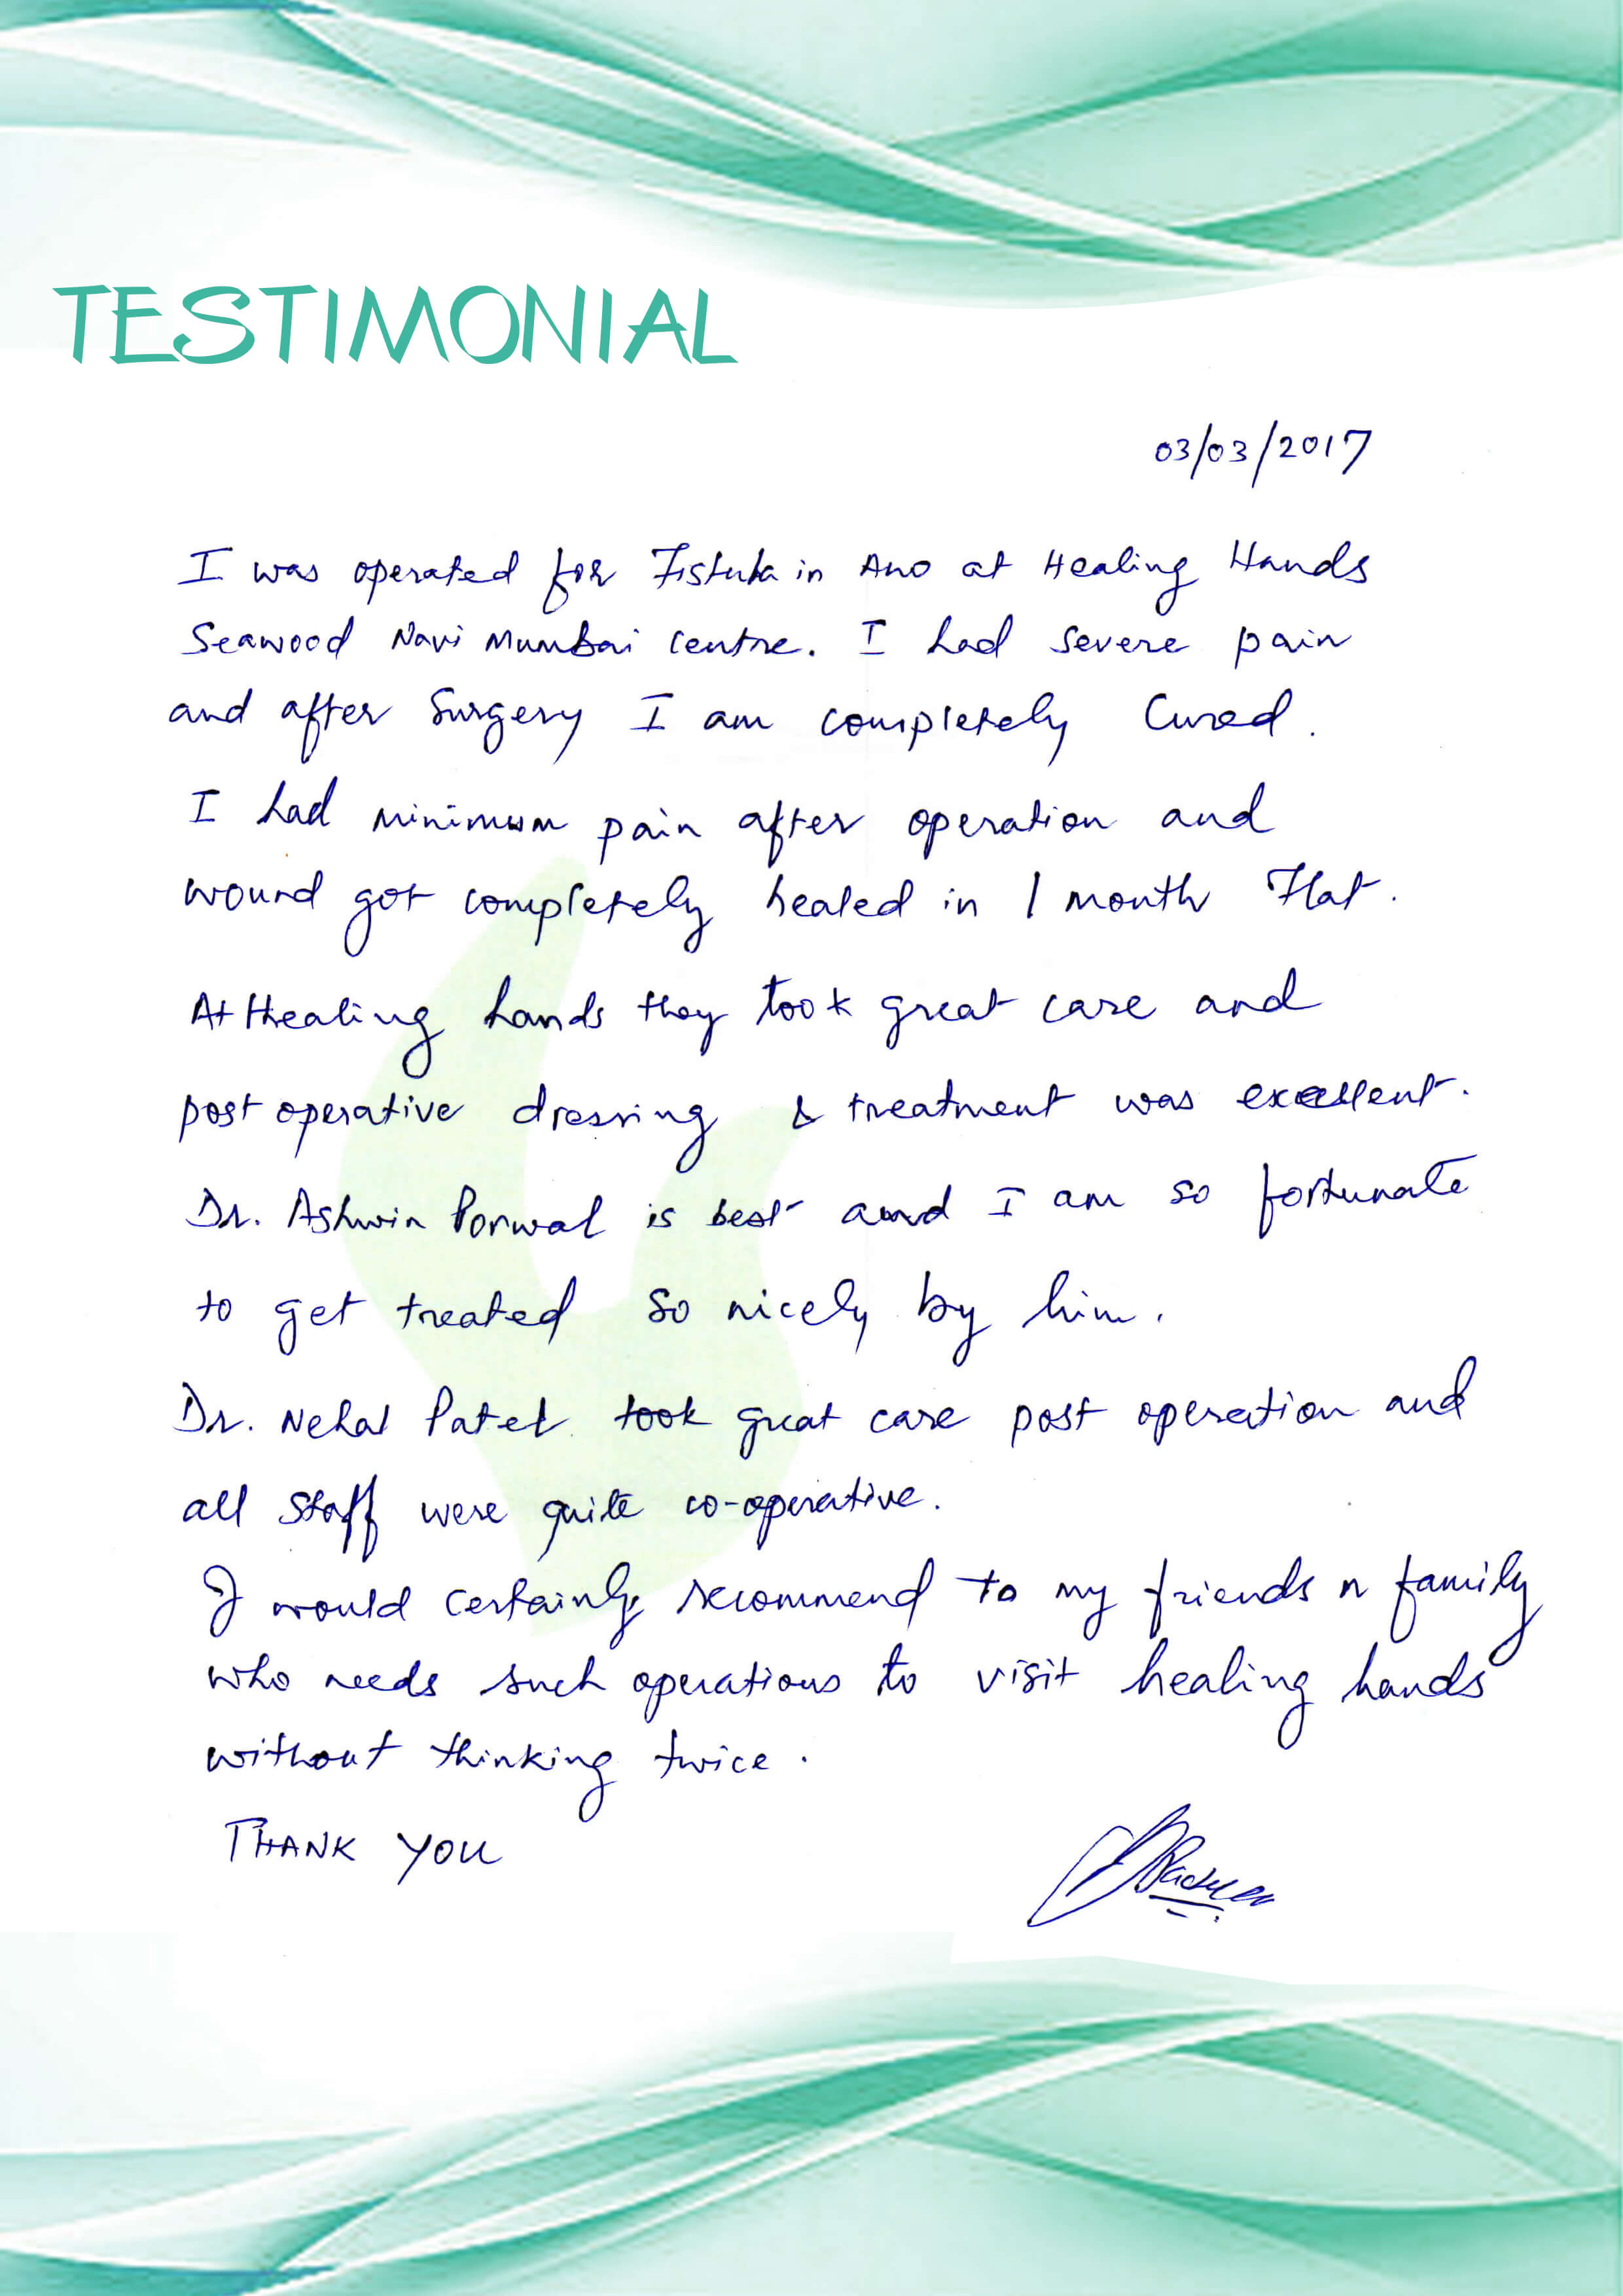 TESTIMONIAL
03/03/2017
I was operated for Fistula in Ano at Healing Hands
Seawood Navi Mumbai centre. I had severe pain
and after Surgery I am completely Cured.
I had minimum pain after operation and
wound got completely healed in 1 month Flat.
At Healing hands they took great care and
post operative dressing & treatment was excellent.
Dr. Ashwin Porwal is best and I am so fortunate
to get treated so nicely by him.
Dr. Nehal Patel took great care post operation and
all staff were quite co-operative.
I would certainly recommend to my friends n family
who needs such operations to visit healing hands
without thinking twice.
THANK YOU